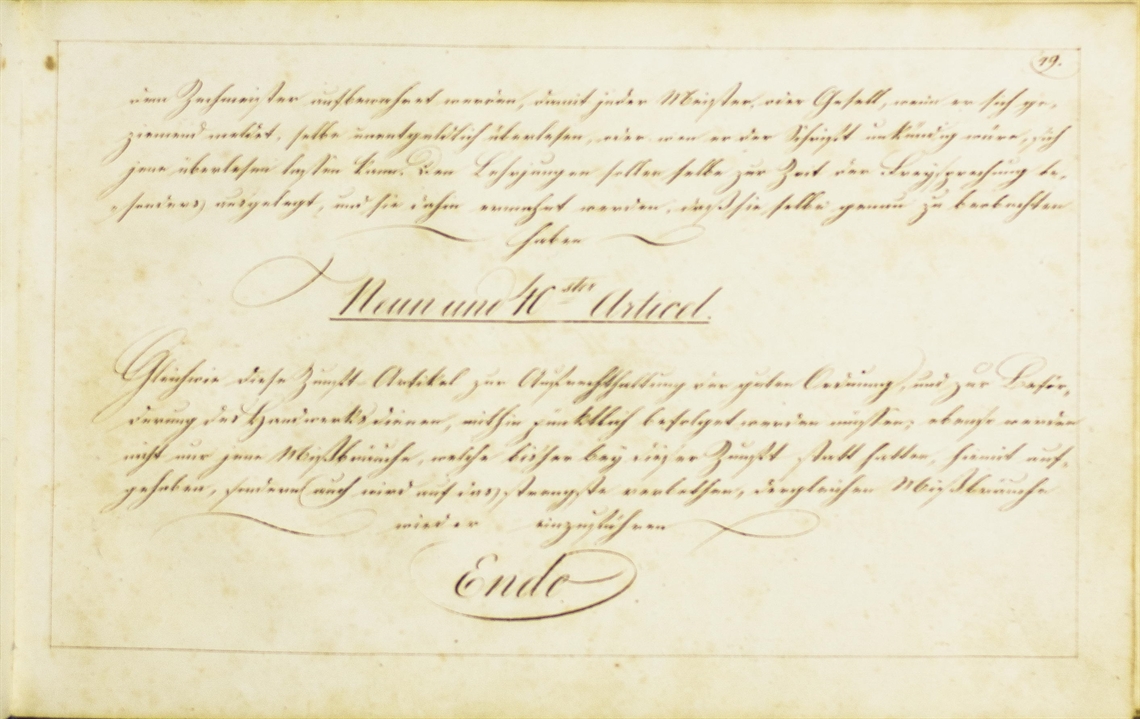 19.
dem Zechmeister aufbewahret werden, damit jeder Meister, oder Gesell, wenn er sich ge-
ziemend meldet, selbe unentgeldlich überlesen, oder wen er der Schrift unkündig wäre, sich
jene überlesen lassen kann. Den Lehrjungen sollen selbe zur Zeit der Freysprechung be-
sonders ausgelegt, und sie dahin ermahnt werden, daß sie selbe genau zu beobachten
haben
Neun und 40ster Articel.
Gleichwie diese Zunft-Artikel zur Aufrechthaltung der guten Ordnung, und zur Beför-
derung des Handwerks dienen, mithin pünktlich befolget werden müssen; ebenso werden
nicht nur jene Mißbräuche, welche bisher bey dieser Zunft statt hatten, hiemit auf-
gehoben, sondern auch wird auf das strengste verbothen, dergleichen Mißbräuche
wieder einzuführen
Ende